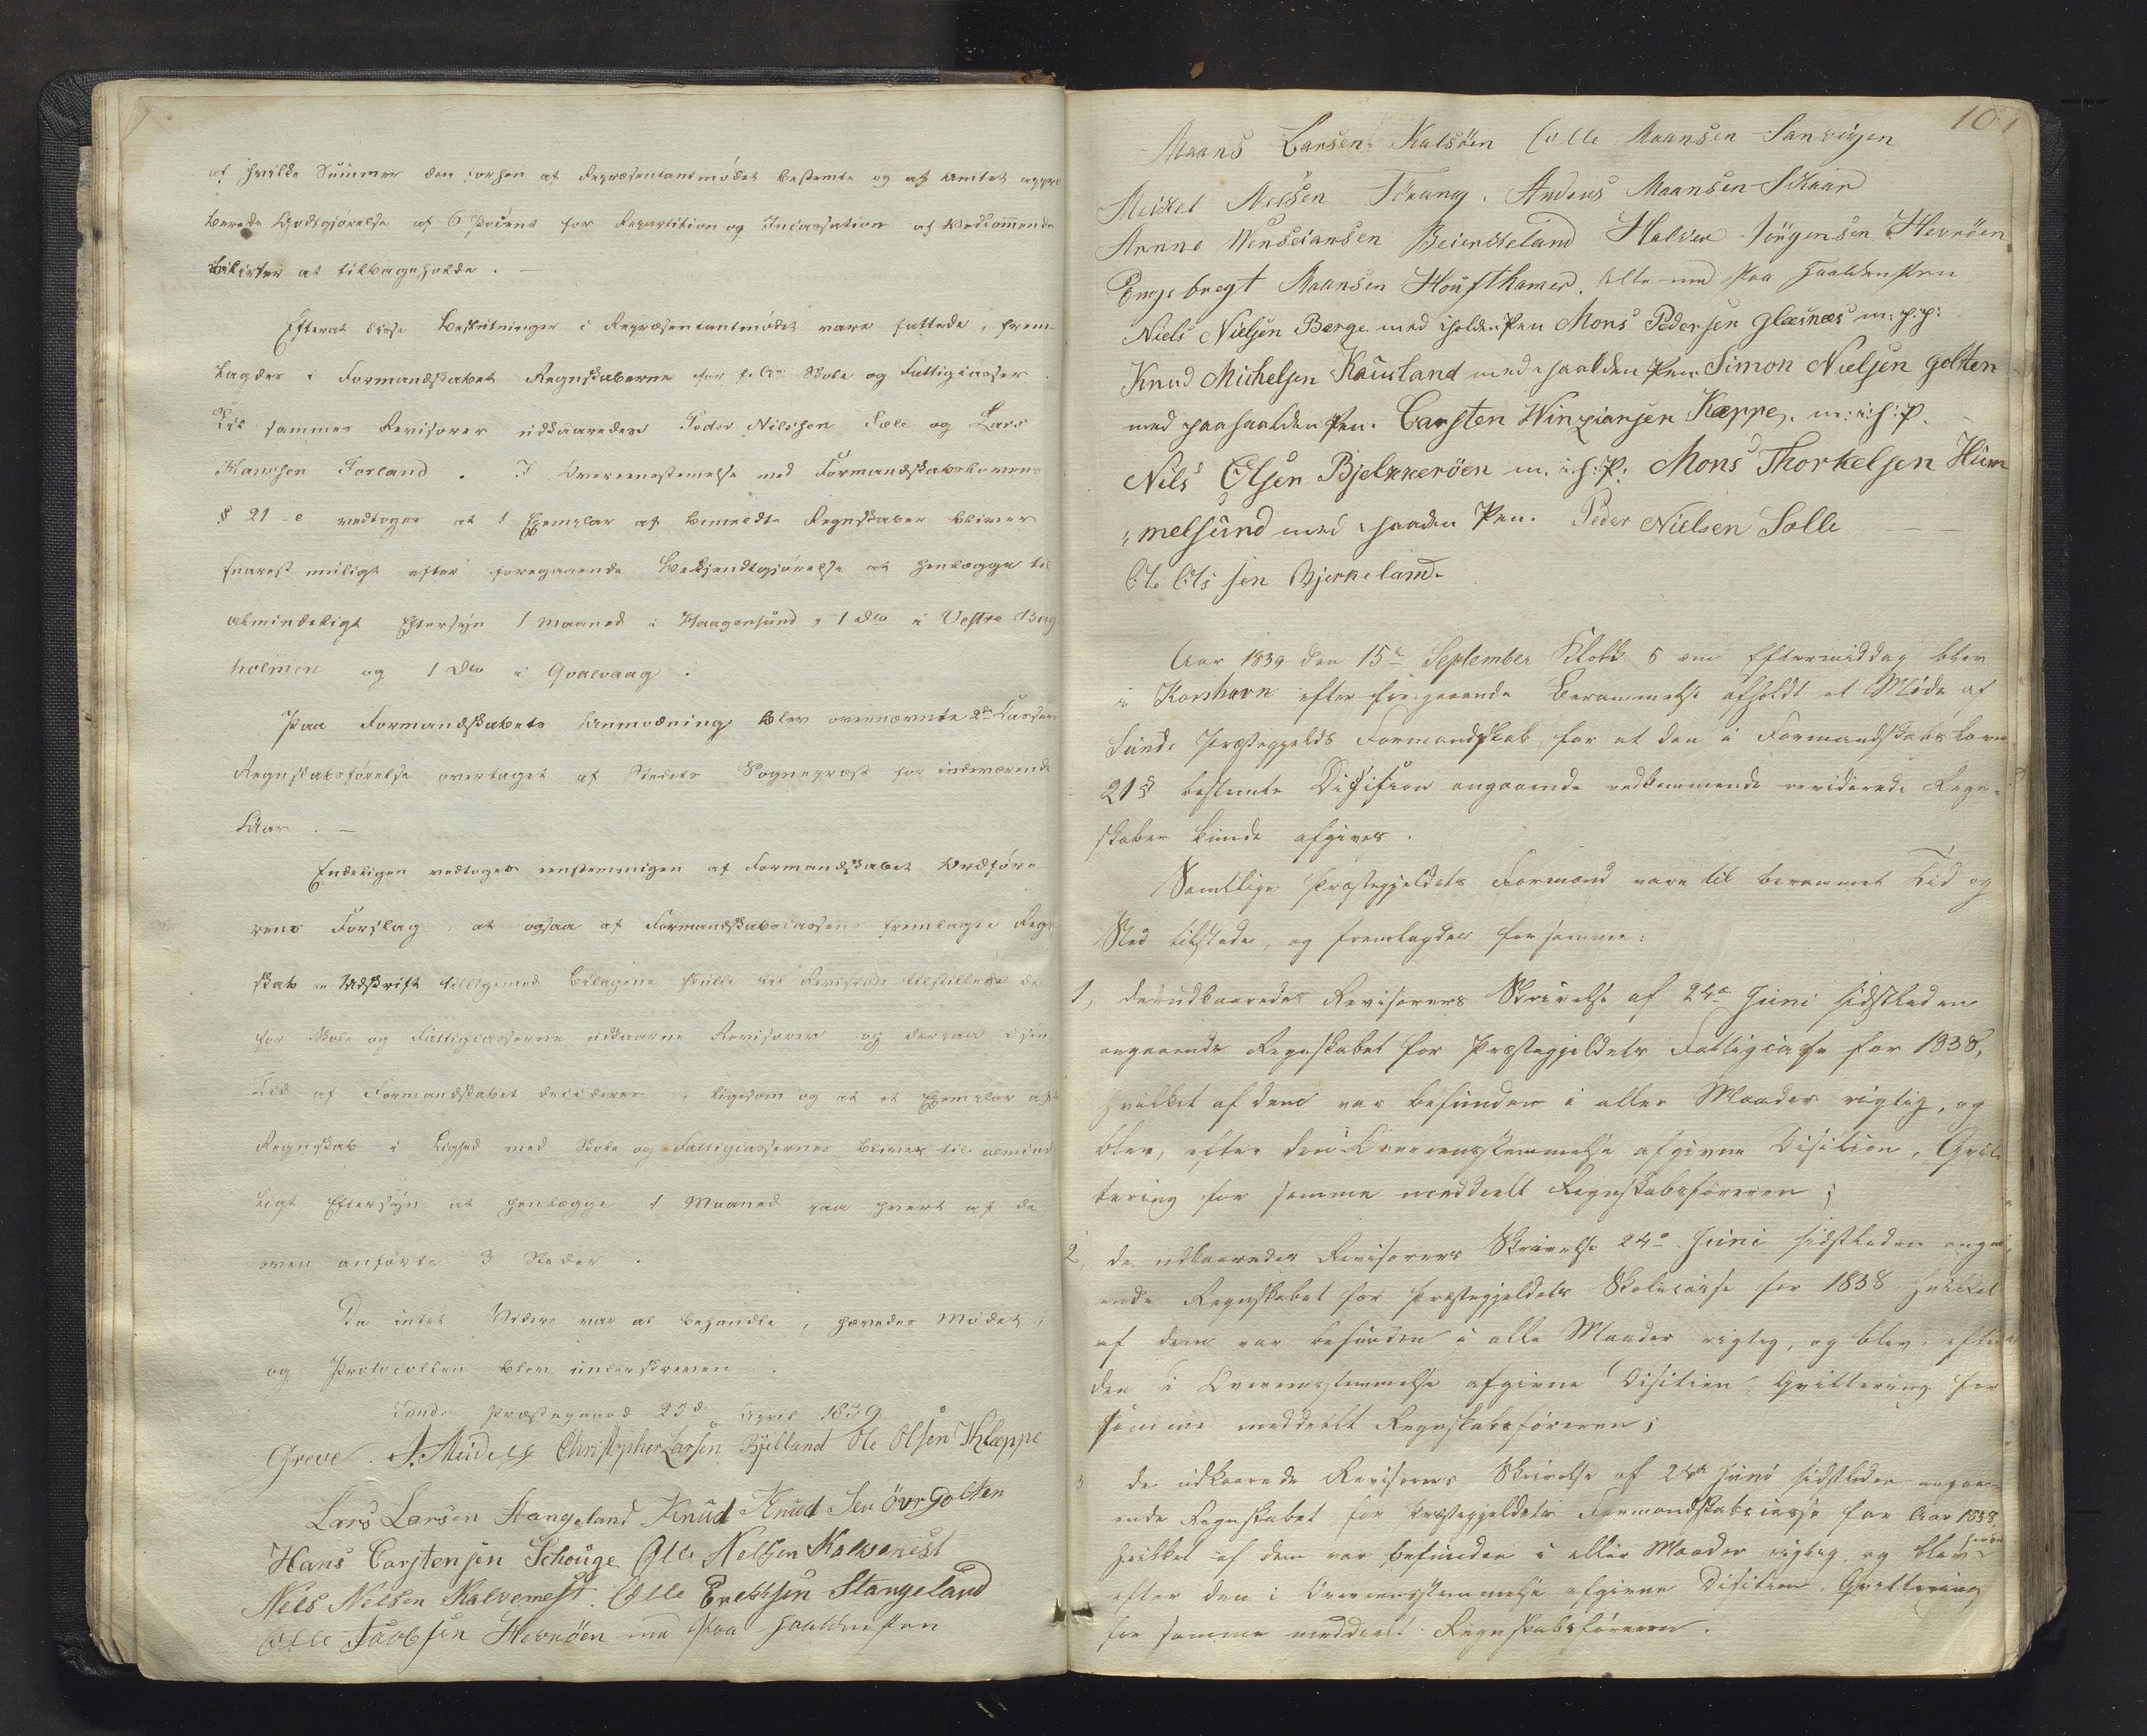 af hvilke Summer den forhen af Repræsentantmødet bestemte og af Amtet appro
berede Godtgjørelse af 6 Procent for Repartition og Incassation af Vedkommende
bliver at tilbageholde. —
Efterat disse Beslutninger i Repræsentantmødet vare fattede, frem-
lagdes i Formandskabet Regnskaberne for Skole og Fattigcasser.
Til sammes Revisorer udkaaredes Peder Nilssen Sæle og Lars
Hanssen Forland. I Overeensstemmelse med Formandskabslovens
§ 21 - vedtoges at 1 Exemplar af bemeldte Regnskaber bliver
snarest muligt efter foregaaende Bekjendtgjørelse at henlægge til
almindeligt Eftersyn 1 Maaned i Haagensund, 1 do i Vestre Bag
holmen og 1 do i Qvalvaag.
Paa Formandskabets Anmodning blev ovennævnte 2de Cassers
Regnskabsførelse overtaget af Stedets Sognepræst for indeværende
Aar. —
Endeligen vedtoges eenstemmigen af Formandskabet Ordføre
rens Forslag, at ogsaa af Formandskabscassens fremlagte Regn
skab en Udskrift tilligemed Bilagene skulle til Revision tilstilledes de
for Skole og Fattigcasserne udkaarne Revisorer og derpaa i sin
Tid af Formandskabet decideres, ligesom og at et Exemplar af
Regnskab i Lighed med Skole og Fattigcassernes bliver til alminde
ligt Eftersyn at henlægge 1 Maaned paa hvert af de
oven anførte 3 Steder.
Da intet Videre var at behandle, hævedes Mødet,
og Protocollen blev underskreven.
Sunds Præstegaard 23de April 1839
Greve. J. Meidell Christopher Larsen Bjelland Ole Olsen Klæppe
Lars Larsen Stangeland Knud Knud Sen övr golten
Hans Carstensen Schouge Olle Nelsen Kalvenest
Nels Nelsen Kalvenest. Olle Erekksen Stangeland
Olle Jacobsen Hevröen med Paa haalden Pen
101
Maans Larsen Kalsöen Colle Maansen Sanvigen
Meickel Nelsen Trang. Anders Maansen Skaar
Arnne Wenseiansen Beierskeland Halver Jörgensen Hevröen
Engebregt Maansen Houfthamer. alle med Paa haalden Pen
Niels Nielsen Berge med iholden Pen Mons Pedersen Glæsnæs m: p: p:
Knud Michelsen Kausland med ihaalden Pen Simon Nielsen golten
med paahaalden Pen. Carsten Winziansen Kæppe, m: i: h: P.
Nils Olsen Bjelkkeröen m. i. h: P. Mons Thorkelsen Hüm
„melsund med ihaaden Pen. Peder Nielsen Solle
Ole Olssen Bjerkeland.
Aar 1839 den 15de September Klokk 5 om Eftermiddag blev
i Korshavn efter foregaaende Berammelse afholdt et Møde af
Sunds Præstegjelds Formandskab, for at den i Formandskabsloven
21 § bestemte Disision angaaende vedkommende reviderede Regn-
skaber kunde afgives.
Samtlige Præstegjeldets Formænd vare til berammet Tid og
Sted tilstede, og fremlagdes for samme:
1, de udkaarede Revisorers Skrivelse af 24de Juni sidstleden
angaaende Regnskabet for Præstegjeldets Fattigcasse for 1838,
hvilket af dem var befunden i alle Maader rigtig, og
blev, efter den i Overeensstemmelse afgivne Disition, Qvit-
tering for samme meddeelt Regnskabsføreren;
2, de udkaarede Revisorers Skrivelse 24de Juni sidstleden angaa-
ende Regnskabet for Præstegjeldets Skolecasse for 1838 hvilket
af dem var befunden i alle Maader rigtig, og blev, efter
den i Overeensstemmelse afgivne Disition, Qvittering for
samme meddeelt Regnskabsføreren;
3 de udkaarede Revisorers Skrivelse af 24de Juni sidstleden angaa-
ende Regnskabet for Præstegjeldets Formandskabscasse for Aar 1838
hvilket af dem var befunden i alle Maader rigtig, og blev
efter den i Overeensstemmelse afgivne Disition, Qvittering
for samme meddeelt Regnskabsføreren.